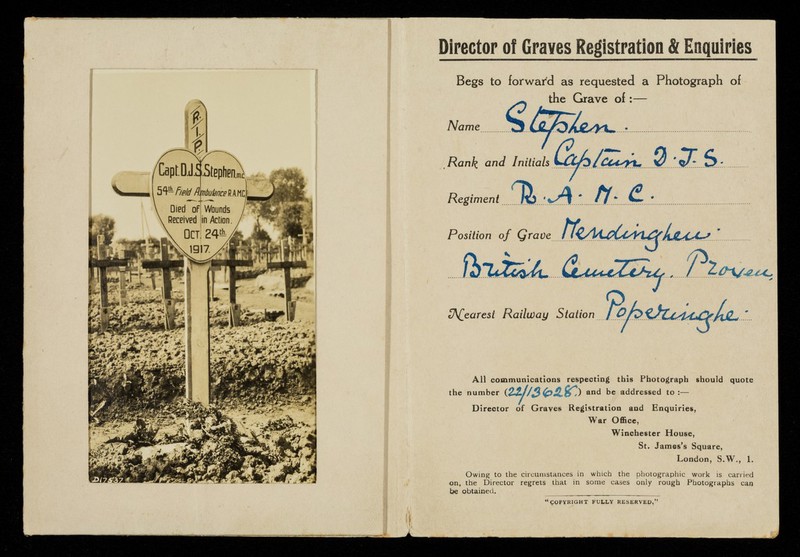 R.I.P.
Capt. D.J.S. Stephen, M.C.
54th Field Ambulance R.A.M.C.
Died of Wounds
Received in Action.
OCT. 24th
1917.
D17537
Director of Graves Registration & Enquiries
Begs to forward as requested a Photograph of
the Grave of :—
Name Stephen.
Rank and Initials Captain D.J.S.
Regiment R.A.M.C.
Position of Grave Mendinghem
British Cemetery. Proven,
Nearest Railway Station Poperinghe.
All communications respecting this Photograph should quote
the number (22/13628.) and be addressed to :—
Director of Graves Registration and Enquiries,
War Office,
Winchester House,
St. James's Square,
London, S.W., 1.
Owing to the circumstances in which the photographic work is carried
on, the Director regrets that in some cases only rough Photographs can
be obtained.
"COPYRIGHT FULLY RESERVED."